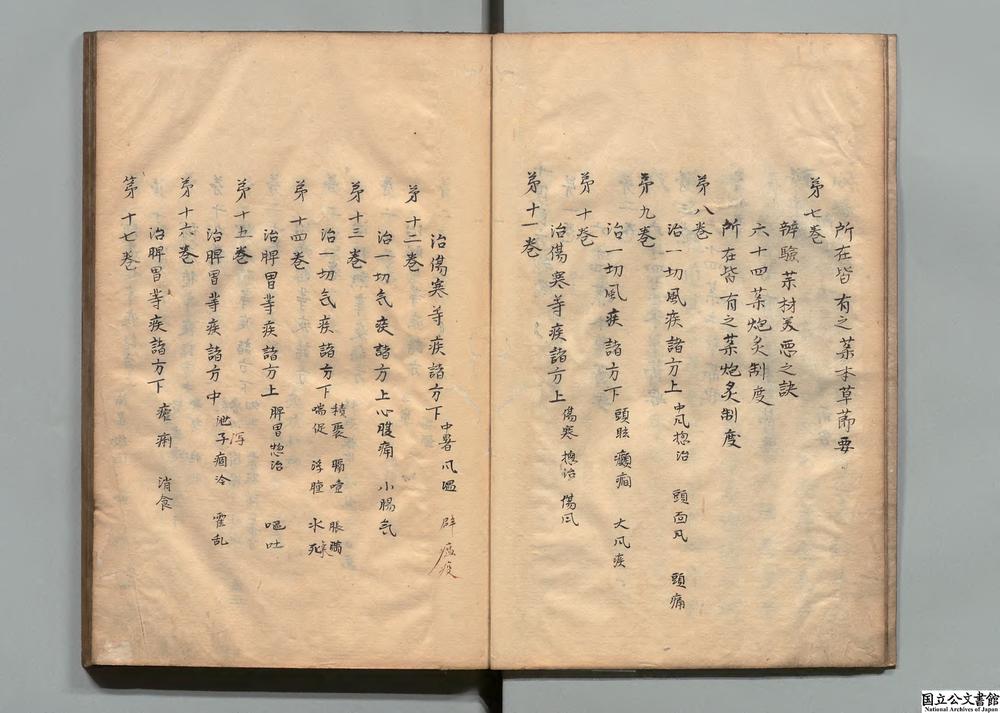 所在皆有之薬本草節要
第七巻
辨驗薬材美悪之訣
六十四薬炮炙制度
所在皆有之薬炮炙制度
第八巻
治一切風疾諸方上 中风揔治 頭面风 頭痛
第九巻
治一切風疾諸方下 頭眩 癲癇 大风疾
第十巻
治傷寒等疾諸方上 傷寒 揔治 傷风
第十一巻
治傷寒等疾諸方下 中暑 风温 辟瘟疫
第十二巻
治一切気疾諸方上 心腹痛 小腸気
第十三巻
治一切気疾諸方下 積聚 膈噎 脹満 喘促 浮腫 水
第十四巻
治脾胃等疾諸方上 脾胃惣治 嘔吐
第十五巻
治脾胃等疾諸方中 泄瀉 痼冷 霍乱
第十六巻
治脾胃等疾諸方下 瘧痢 消食
第十七巻
国立公文書館
National Archives of Japan